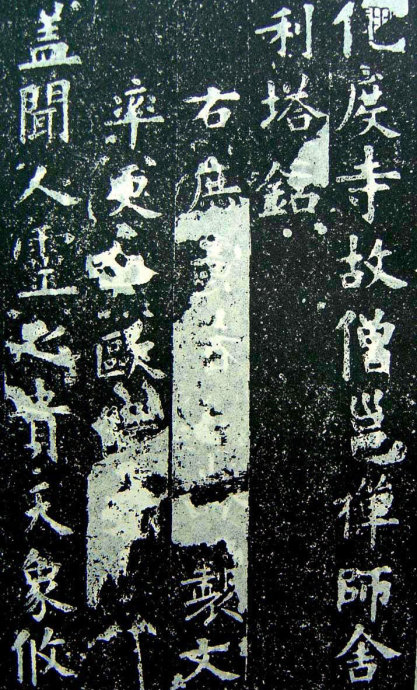 化度寺故僧邕禪師舍
利塔銘
右庶製文
率更令歐
盖聞人靈之貴天象攸